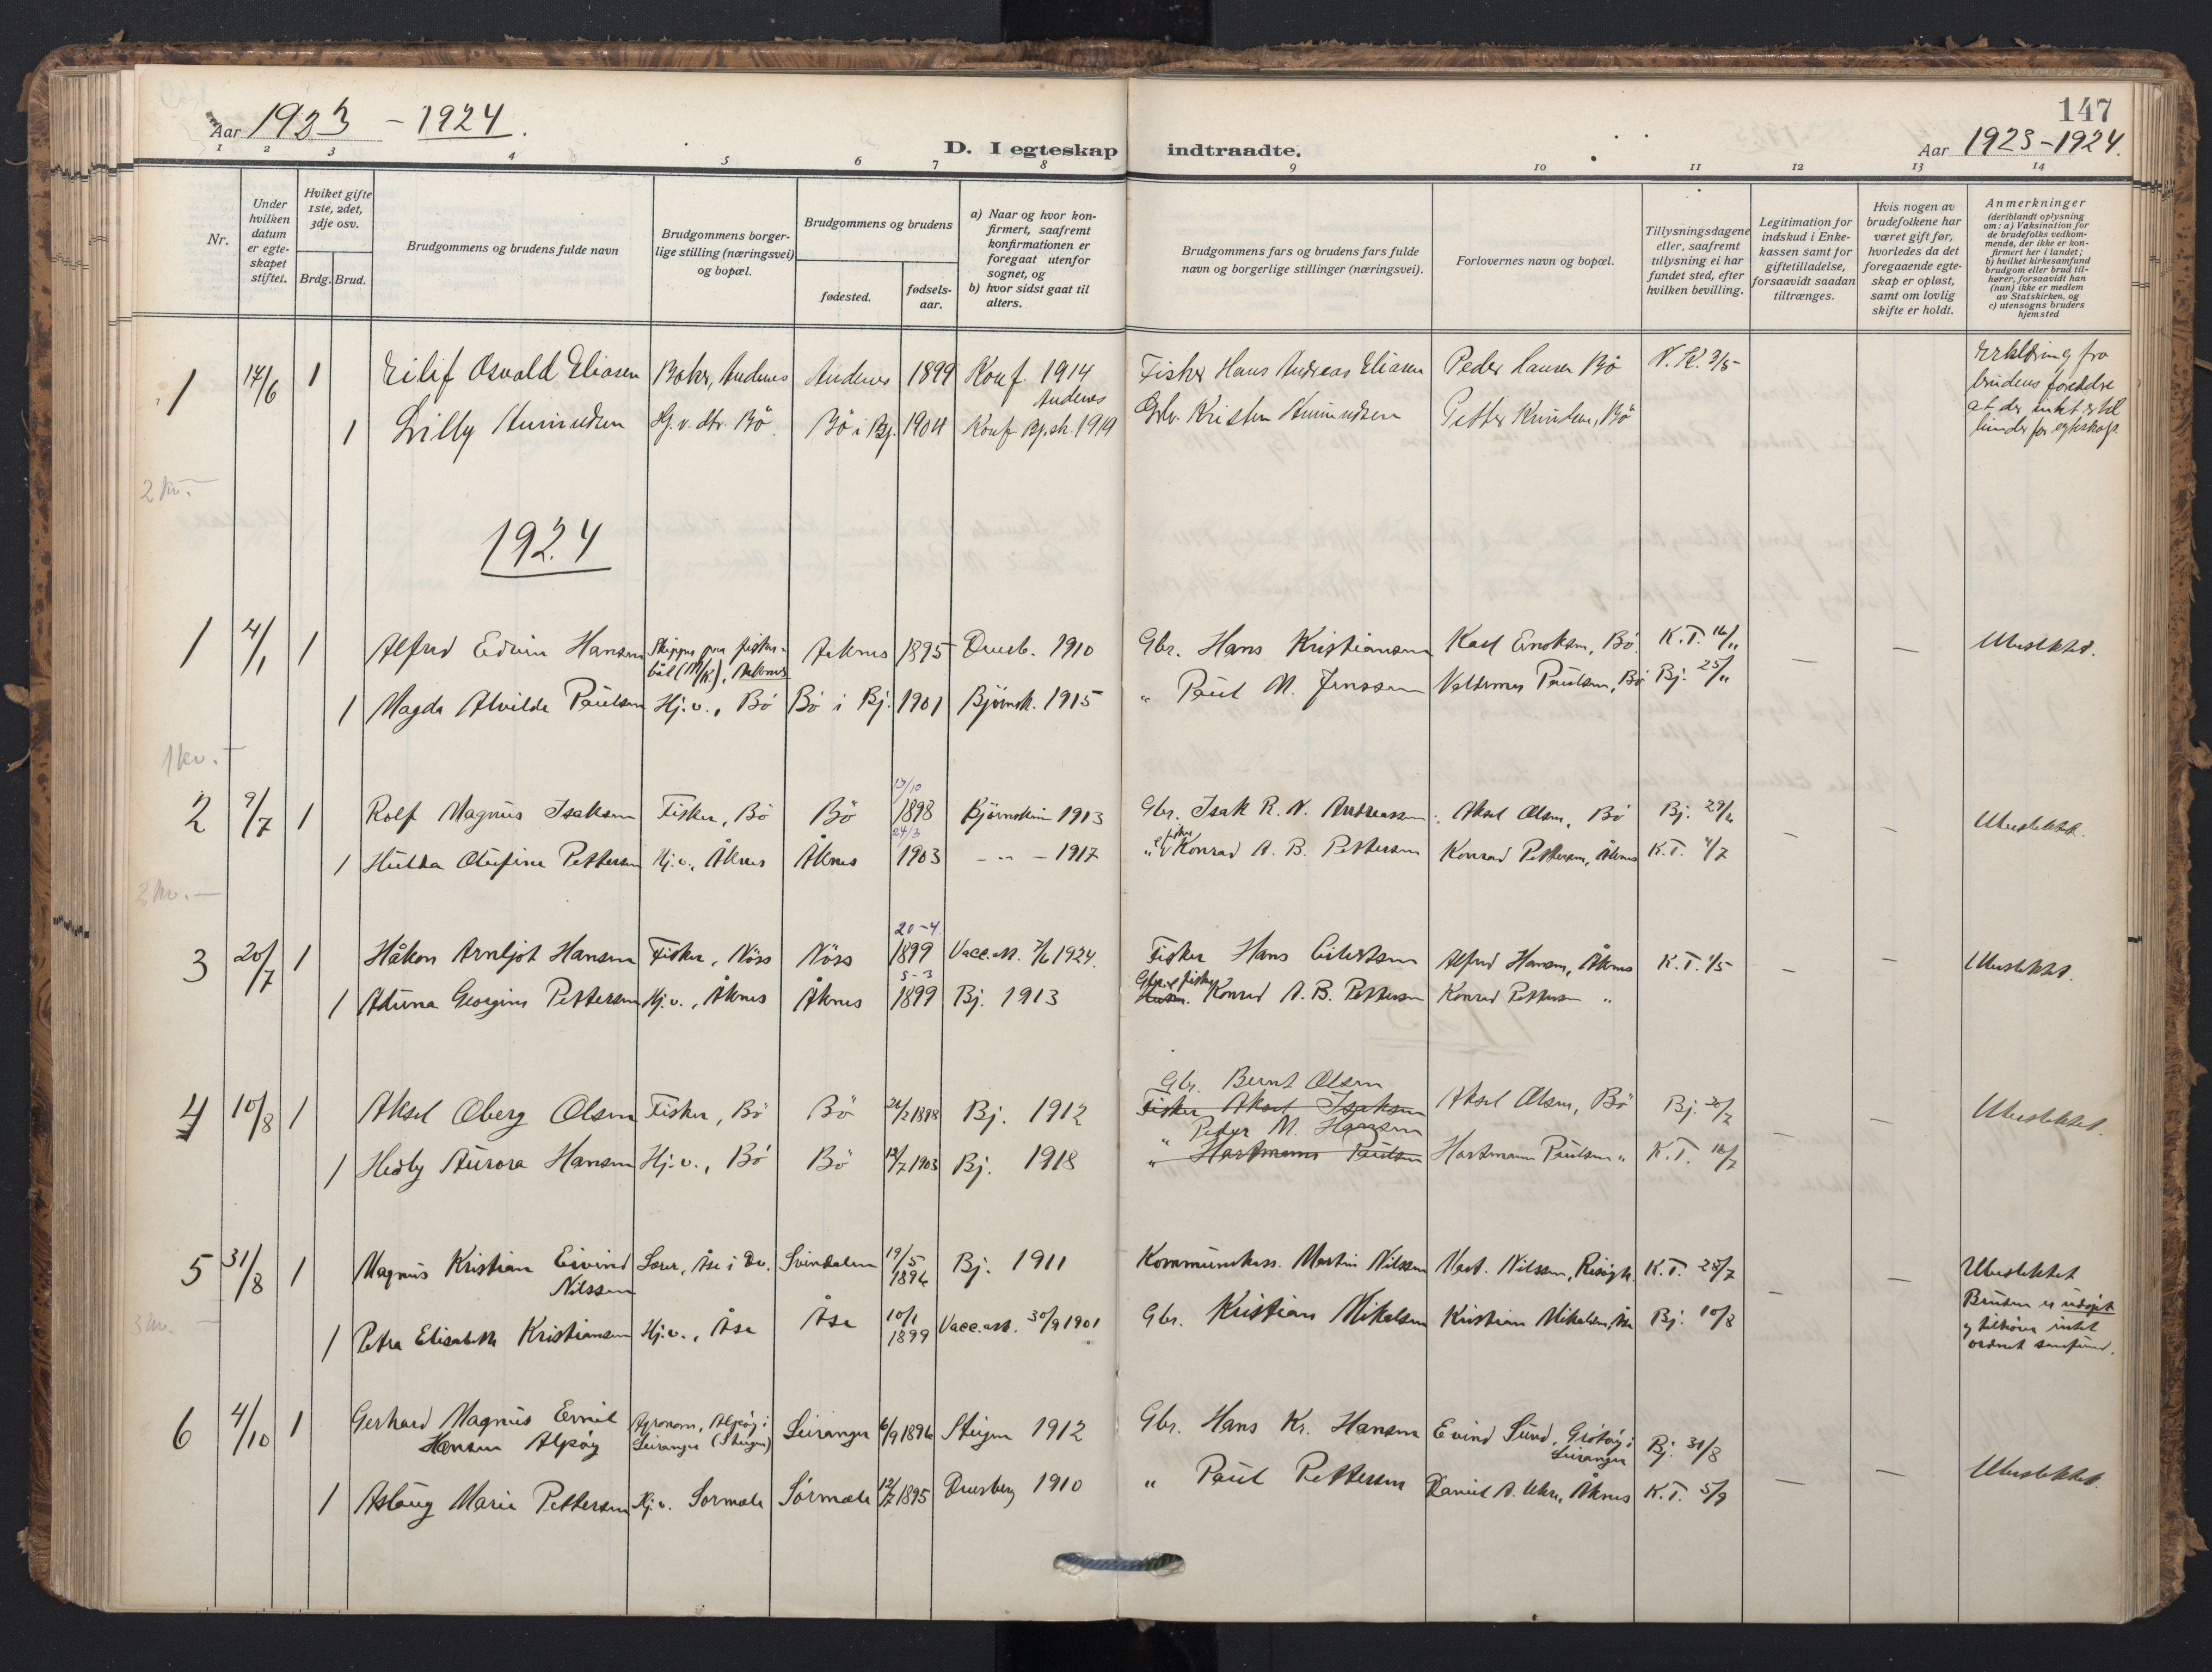 147
Aar 1923 - 1924.
Aar 1923-1924.
D. I egteskap indtraadte.
1 2 3 4 5 6 7 8 9 10 11 12 13 14
Nr.
Under hvilken datum er egteskapet stiftet.
Hviket gifte 1ste, 2det, 3dje osv.
Brdg. Brud.
Brudgommens og brudens fulde navn
Brudgommens borgerlige stilling (næringsvei) og bopæl.
Brudgommens og brudens
fødested.
fødselsaar.
a) Naar og hvor konfirmert, saafremt konfirmationen er foregaat utenfor sognet, og
b) hvor sidst gaat til alters.
Brudgommens fars og brudens fars fulde navn og borgerlige stillinger (næringsvei).
Forlovernes navn og bopæl.
Tillysningsdagene eller, saafremt tillysning ei har fundet sted, efter hvilken bevilling.
Legitimation for indskud i Enkekassen samt for giftetilladelse, forsaavidt saadan tiltrænges.
Hvis nogen av brudefolkene har været gift før, hvorledes da det foregaaende egteskap er opløst, samt om lovlig skifte er holdt.
Anmerkninger
(deriblandt oplysning om: a) Vaksination for de brudefolks vedkommende, der ikke er konfirmert her i landet;
b) hvilket kirkesamfund brudgom eller brud tilhører, forsaavidt han (hun) ikke er medlem av Statskirken, og
c) utensogns bruders hjemsted
1 17/6 1 Eilif Osvald Eliasen Andenes Andenes 1899 Konf. 1914 Andenes Fisker Hans Andreas Eliasen Peder Hansen Bö N. K. 3/5 Erklæring fra brudens foreldre
1 Lilly Amundsen Hj. v. dtr. Bö Bö i Bj. 1904 Konf. Bj.sk. 1919 Gbr. Kristen Amundsen Petter Knudsen, Bö
2 kr. -
1924
1 4/1 1 Alfred Edvin Hansen Skipper paa fisker-båt (M/K), Åknes Åknes 1895 Dverb. 1910 Gbr. Hans Kristiansen Karl Enoksen, Bö K.T. 16/11 — — Ubeslektet.
1 Magda Alvilde Paulsen Hj. v., Bö Bö i Bj. 1901 Björnsk. 1915 " Paul M. Jenssen Valdemar Paulsen, Bö Bj. 25/11
1 kr. -
2 9/7 1 Rolf Magnus Isaksen Fisker, Bö Bö 13/10 1898 Björnskin 1913 Gbr. Isak R. N. Andreassen Aksel Olsen, Bö Bj. 29/6 — — Ubeslektet.
1 Hulda Olufine Pettersen Hj. v., Åknes Åknes 24/3 1903 - " - 1917 " & fisker Konrad A. B. Pettersen Konrad Pettersen, Åknes K.T. /7
2 kr. —
3 20/7 1 Håkon Arnljot Hansen Fisker, Nöss Nöss 20-4 1899 Vacc.att. 7/6 1924. Fisker Hans Eilertsen Alfred Hansen, Åknes K.T. 1/5 — — Ubeslektet.
1 Aduna Georgine Pettersen Hj. v., Åknes Åknes 5-3 1899 Bj. 1913 Gbr. & fisker Konrad A. B. Pettersen Konrad Pettersen "
4 10/8 1 Aksel Oberg Olsen Fisker, Bö Bö 26/2 1898 Bj. 1912 Gbr. Bernt Olsen Fisker Aksel Isaksen Aksel Olsen, Bö Bj. 20/7 — — Ubeslektet.
1 Hedly Aurora Hansen Hj. v., Bö Bö 12/7 1903 Bj. 1918 " Peder M. Hansen " Hartmann Paulsen Hartmann Paulsen " K.T. 16/7
5 31/8 1 Magnus Kristian Eivind Nilssen Lærer, Åse i Dv. Svindalen 19/5 1896 Bj. 1911 Kommunekass. Martin Nilssen Mart. Nilssen, Risöyh. K.T. 28/7 — — Ubeslektet
3 kr. —
1 Petra Elisabeth Kristiansen Hj. v., Åse Åse 10/1 1899 Vacc.att. 30/9 1901 Gbr. Kristian Mikalsen Kristian Mikalsen, Åse Bj. 10/8 Bruden er udöpt og tilhører intet ordnet samfund.
6 4/10 1 Gerhard Magnus Emil Hansen Alpöy Agronom, Alpöy i Leiranger (Steigen) Leiranger 6/9 1896 Steigen 1912 Gbr. Hans Kr. Hansen Eivind Sund, Grötöy i Leiranger Bj. 31/8 — — Ubeslektet.
1 Aslaug Marie Pettersen Hj. v. Sørmela Sørmela 12/7 1895 Dverberg 1910 " Paul Pettersen Daniel A. , Åknes K.T. 5/9